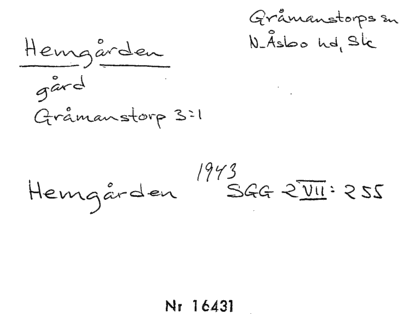 Hemgården
Gråmanstorps sn
N. Åsbo hd, Sk
gård
Gråmanstorp 3:1
Hemgården 1943 SGG 2 VII: 255
Nr 16431